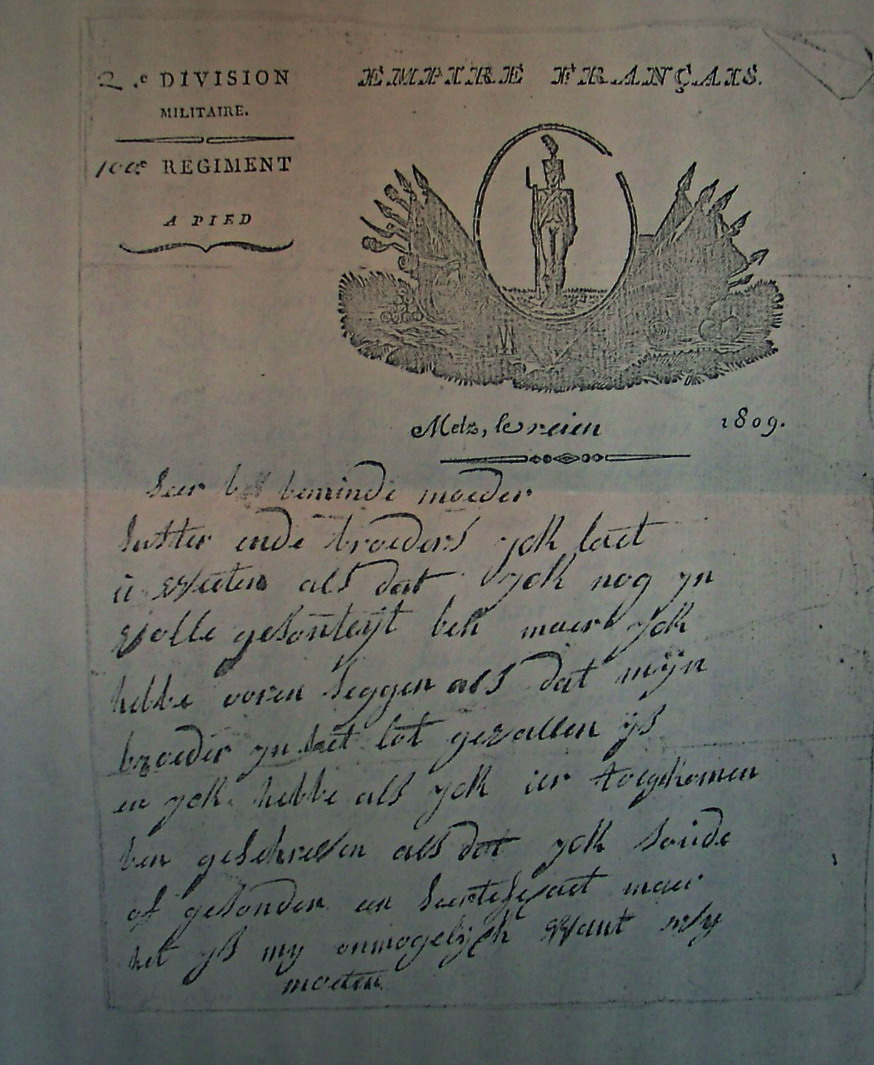 2.e DIVISION
MILITAIRE.
REGIMENT
A PIED
EMPIRE FRANÇAIS.
Metz, le 1809.
Seer beminde moeder
suster ende broeders yck laet
ú weeten als dat yck nog yn
volle gesonteyt ben maer yck
hebbe ooren seggen als dat mijn
broeder yn het lot gevallen ys
en yck hebbe als yck ier toegekomen
ben geschreven als dat yck soude
of gesonden en sertefycaet maer
het ys my onmogelijck want wy
moeten